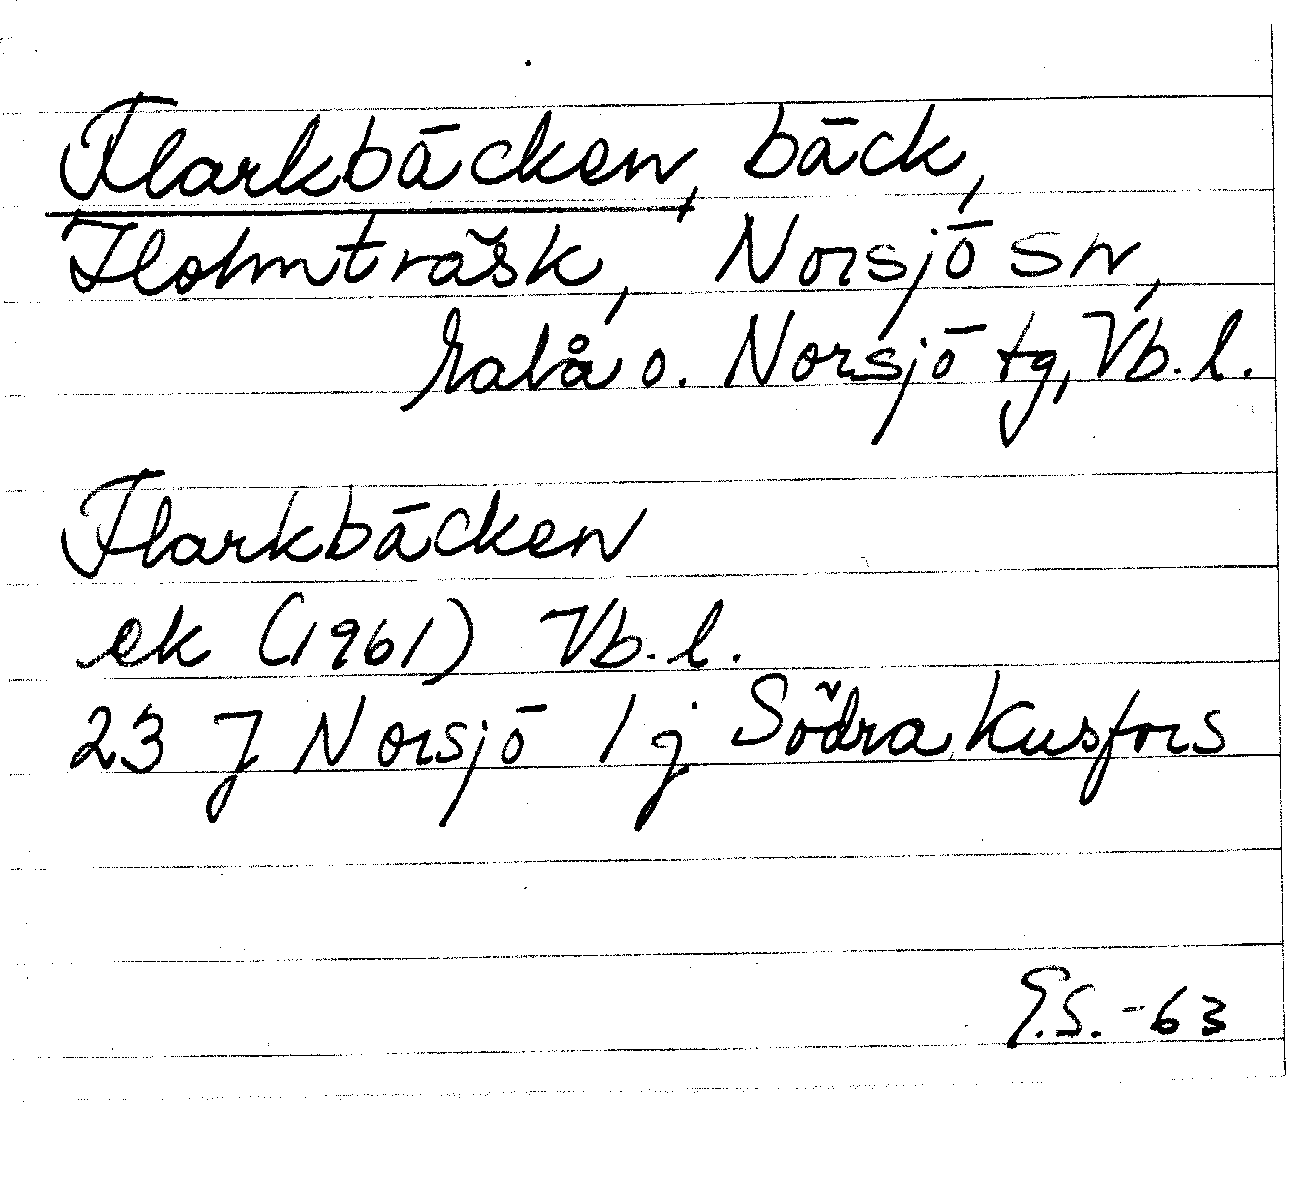 Flarkbäcken, bäck,
Holmträsk, Norsjö sn,
Malå o. Norsjö tg, Vb. l.
Flarkbäcken
ek (1961) Vb. l.
23 J Norsjö 1 j Södra Kusfors
E.S. -63